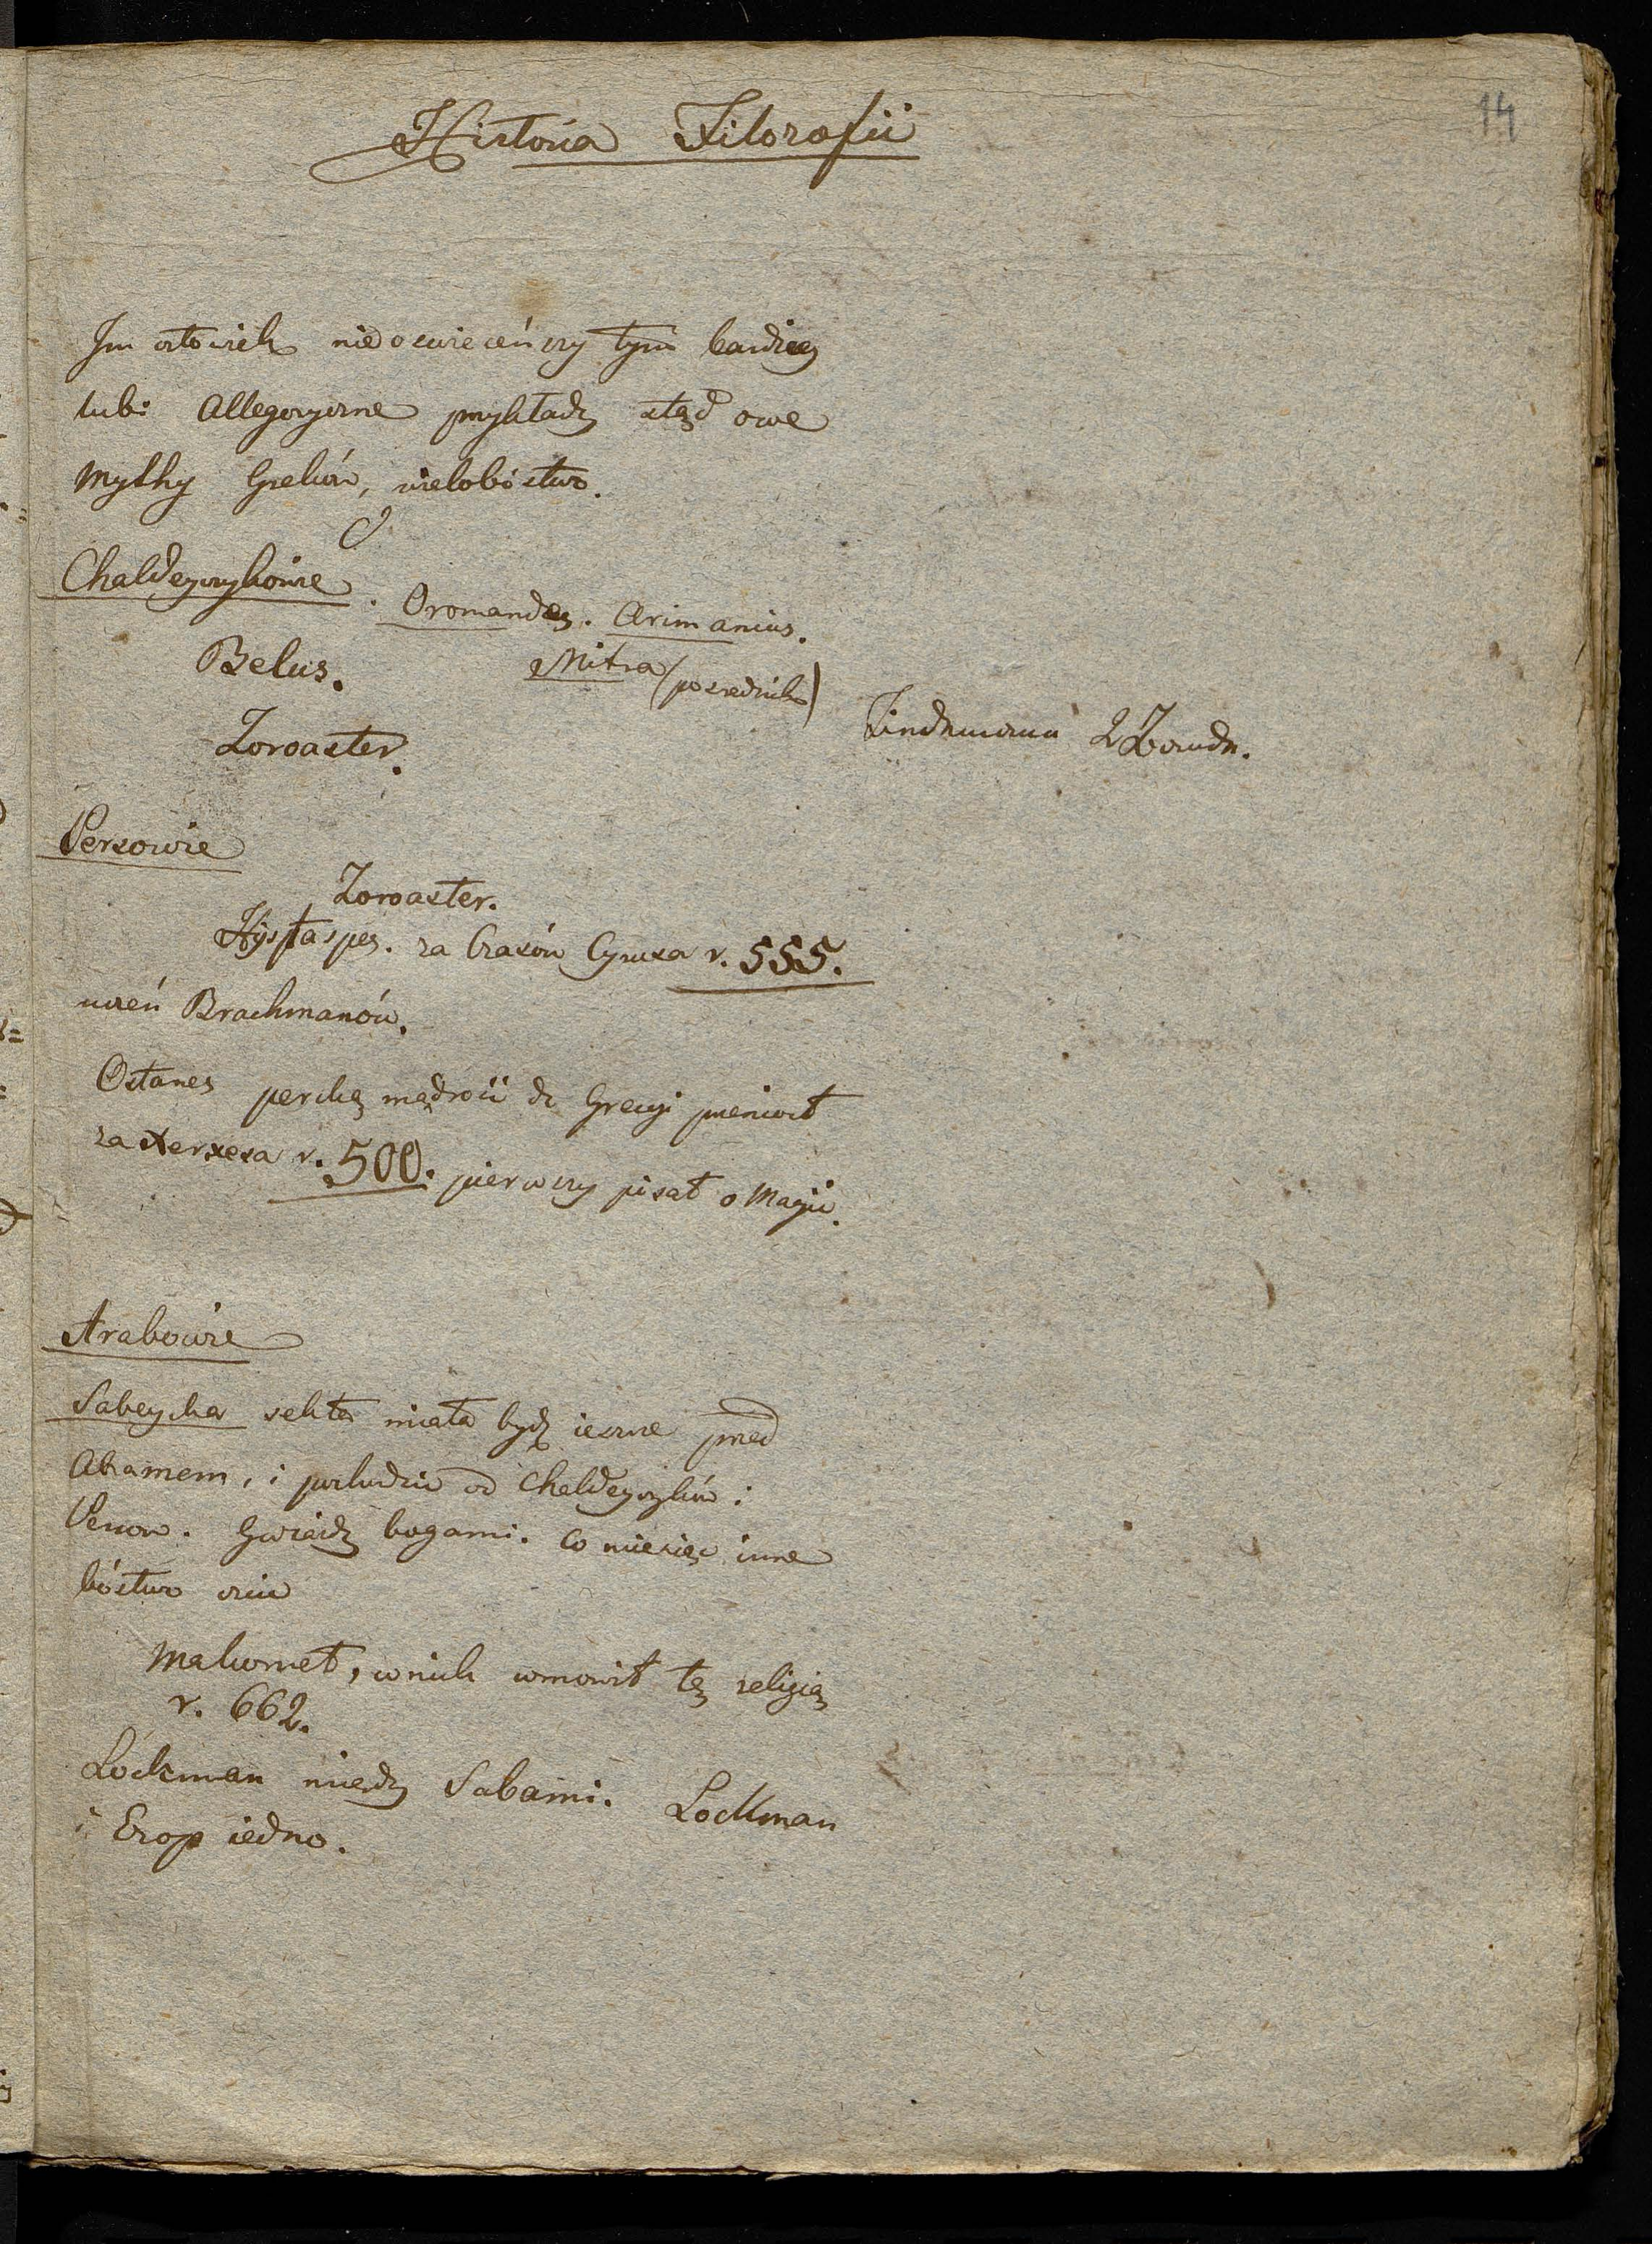 14
Historia Filozofii
Im człowiek nieoświeceńszy tym bardziey
lubi Allegoryczne przykłady stąd owe
Mythy Greków, wielobóstwo.
Chaldeyczykowie. Oromandes. Arimanius.
Belus. Mitra (posrednik)
Zoroaster.
Persowie
Zoroaster.
Hystaspes. za Czasów Cyrusa r. 555.
uczeń Brachmanów.
Ostanes perską mądrość do Grecyi przeniosł
za Xerxesa r. 500. pierwszy pisał o Magii.
Arabowie
Sabeyska sekta miała bydź ieszcze przed
Abramem, i pochodzić od Chaldeyczyków i
Persow. Gwiazdy bogami. Co miesiąc inne
bóstwo czcić
Mahomet, w nich wmowił tę religią
r. 662.
Lockman miedzy Sabami. Lockman
i Ezop iedno.